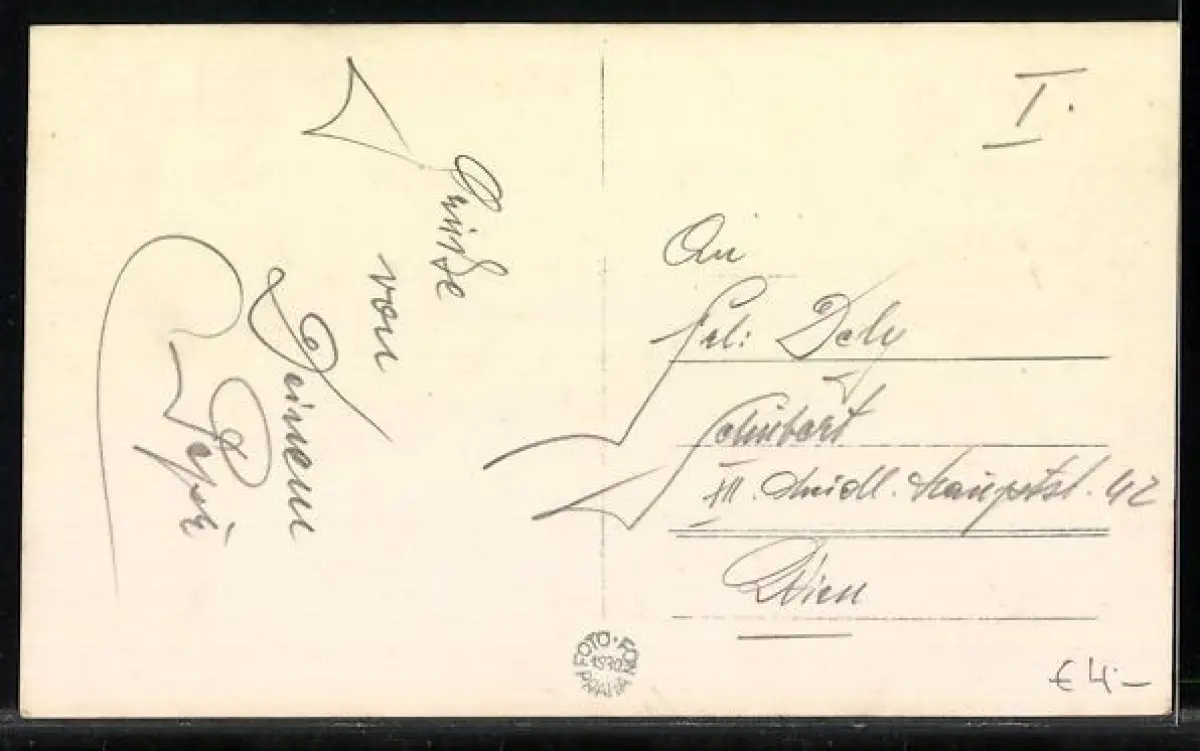 Grüße
von
Deinem
Pepi
I.
An
Frl: Dely
Schubert
XII. Meidl. Hauptst. 42
Wien
FOTO-FON
1930
PRAHA
€ 4.-